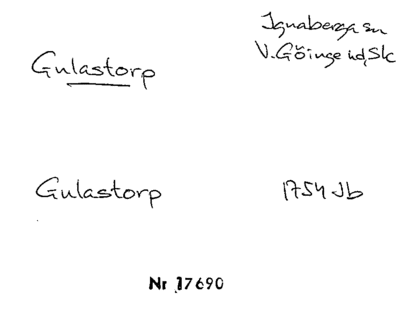 Ignaberga sn
V. Göinge hd, Sk
Gulastorp
Gulastorp 1754 Jb
Nr 17690